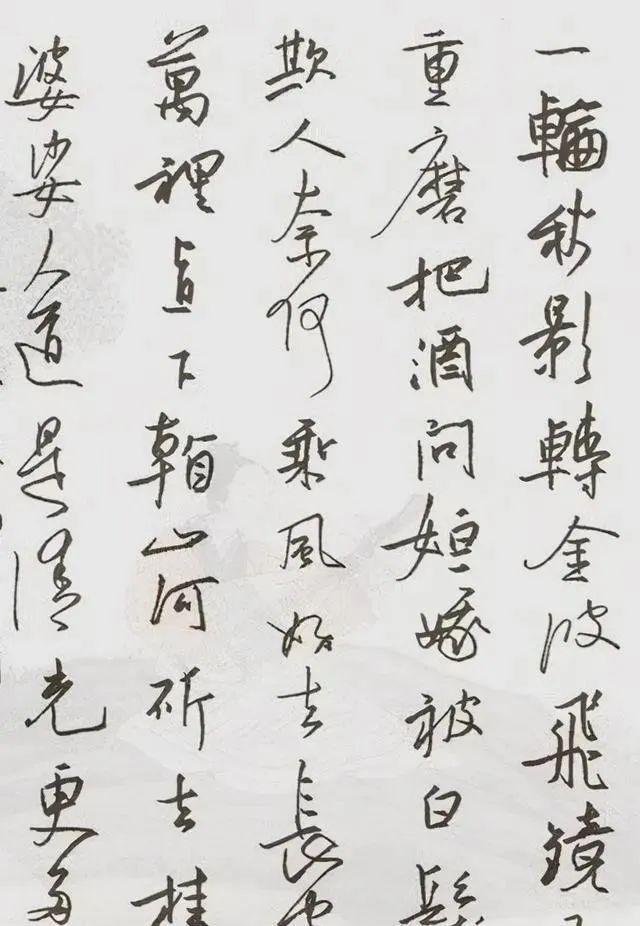 一輪秋影轉金波飛鏡
重磨把酒問姮娥被白髮
欺人奈何乘風好去長空
萬裡直下看山河斫去桂
婆娑人道是清光更多